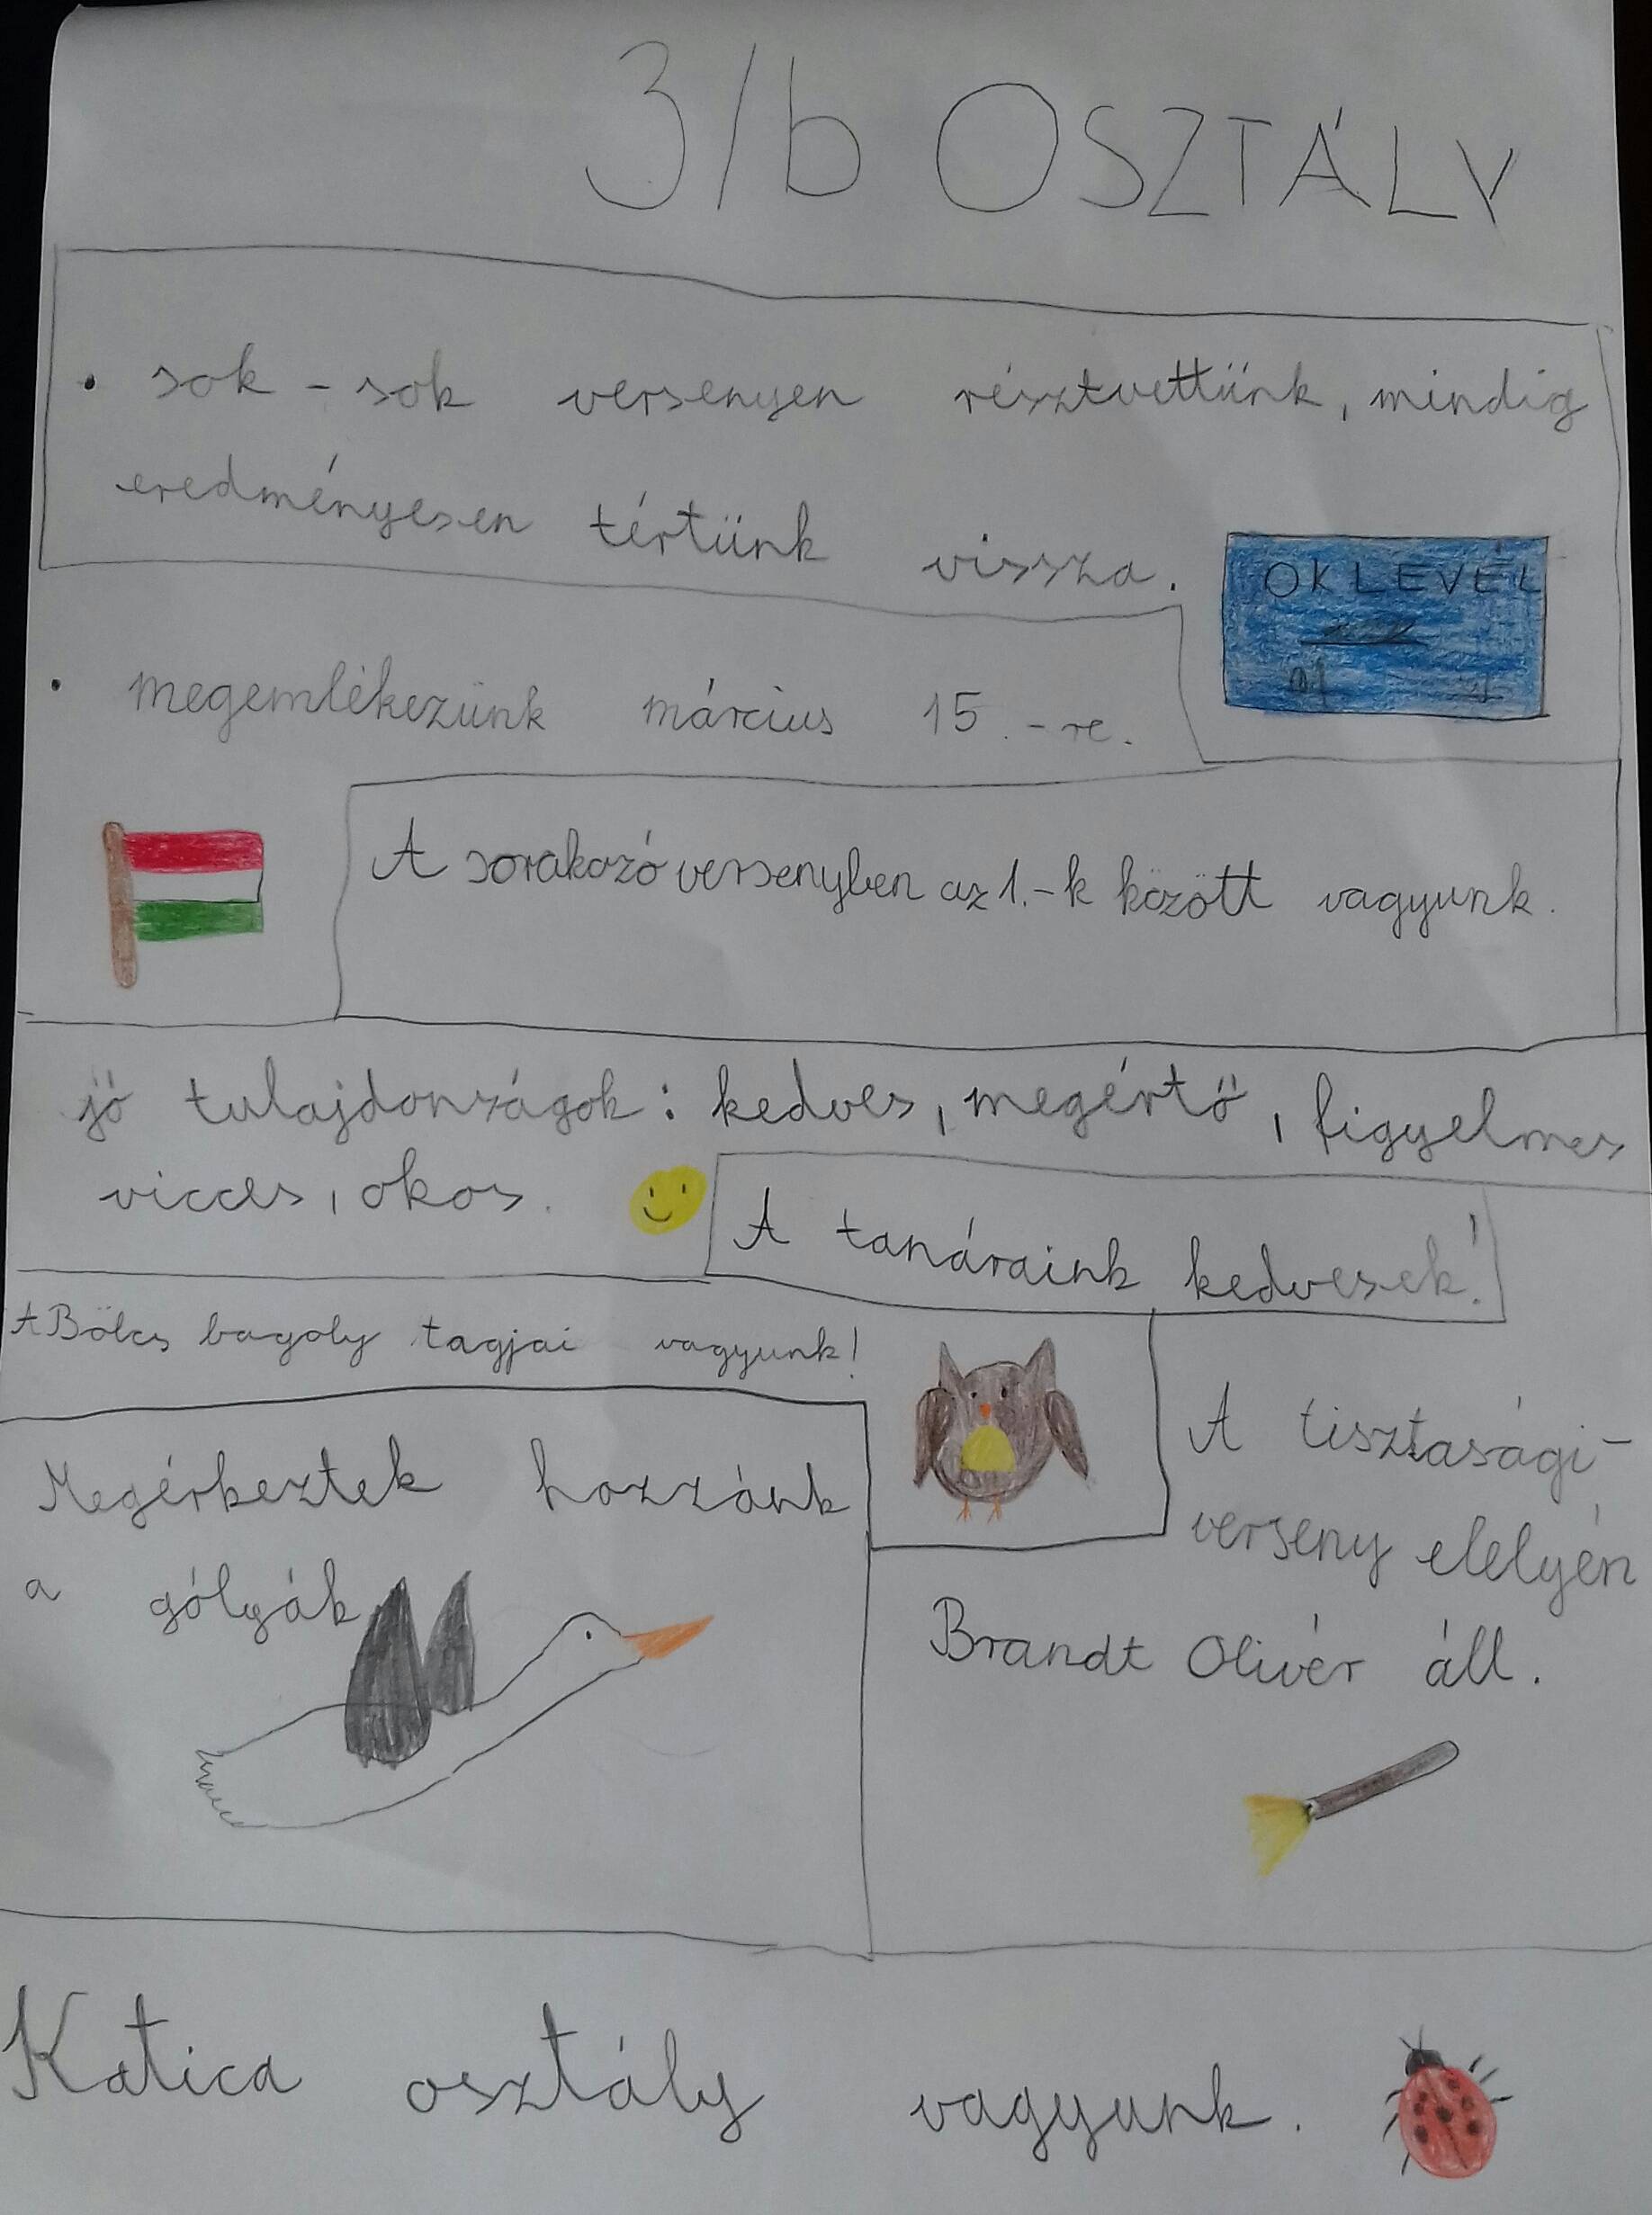 3/b OSZTÁLY
• sok-sok versenyen résztvettünk, mindig
eredményesen tértünk vissza.
OKLEVÉL
• megemlékezünk március 15.-re.
A sorakozó versenyben az 1.-k között vagyunk.
jó tulajdonságok: kedves, megértő, figyelmes
vicces, okos.
A tanáraink kedvesek!
A Bölcs bagoly tagjai vagyunk!
Megérkeztek hozzánk
a gólyák
A tisztasági-
verseny elelyén
Brandt Olivér áll.
Katica osztály vagyunk.